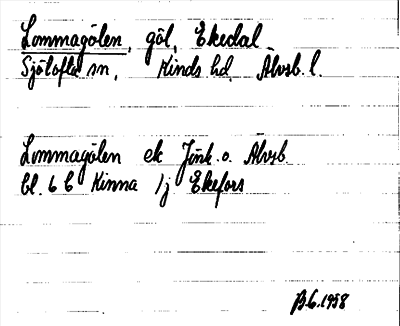 Lommagölen, göl, Ekedal
Sjötofta sn, Kinds hd, Älvsb. l.
Lommagölen ek Jönk. o. Älvsb.
bl. 6 6 Kinna /j Ekefors
B.G. 1958